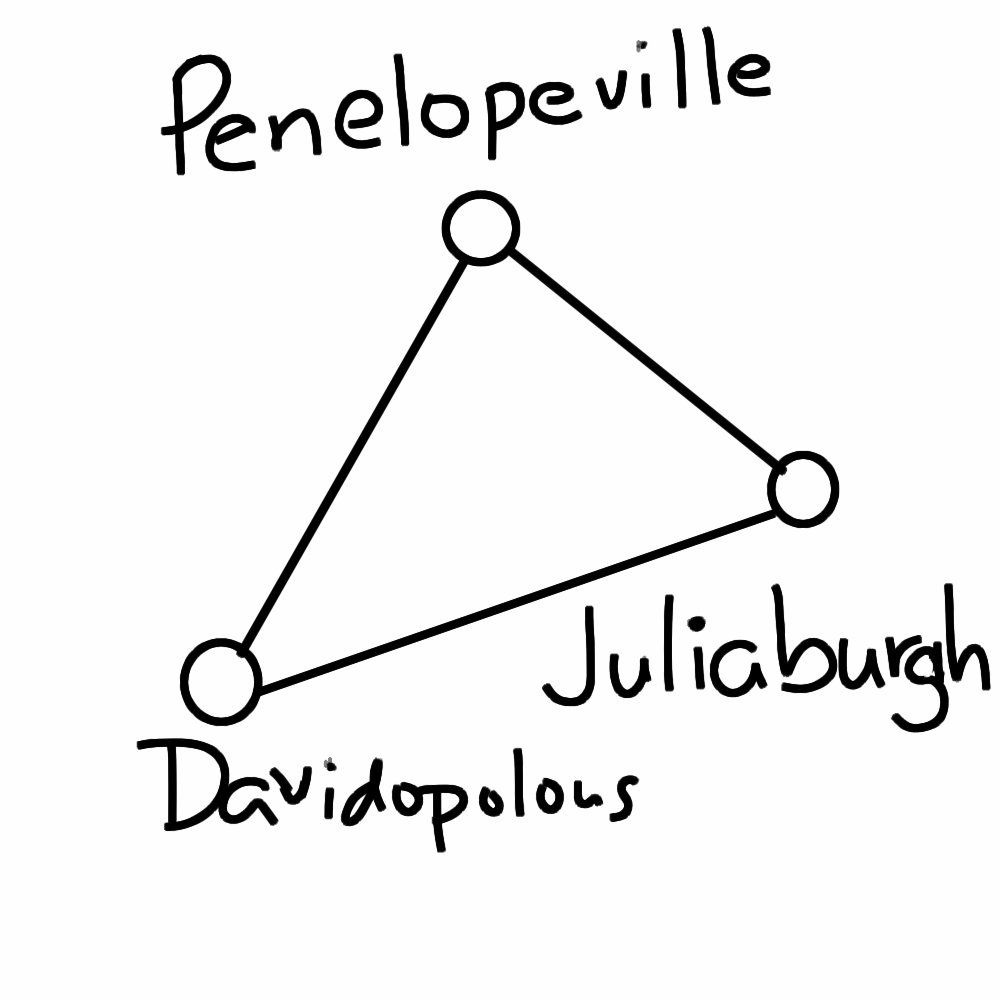 Penelopeville
Juliaburgh
Davidopolous